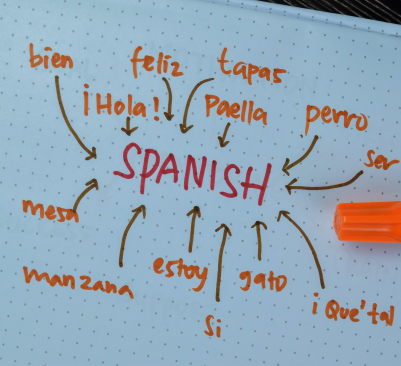 bien
feliz
tapas
¡Hola!
Paella
perro
ser
SPANISH
mesa
manzana
estoy
Si
gato
¡ Que'tal